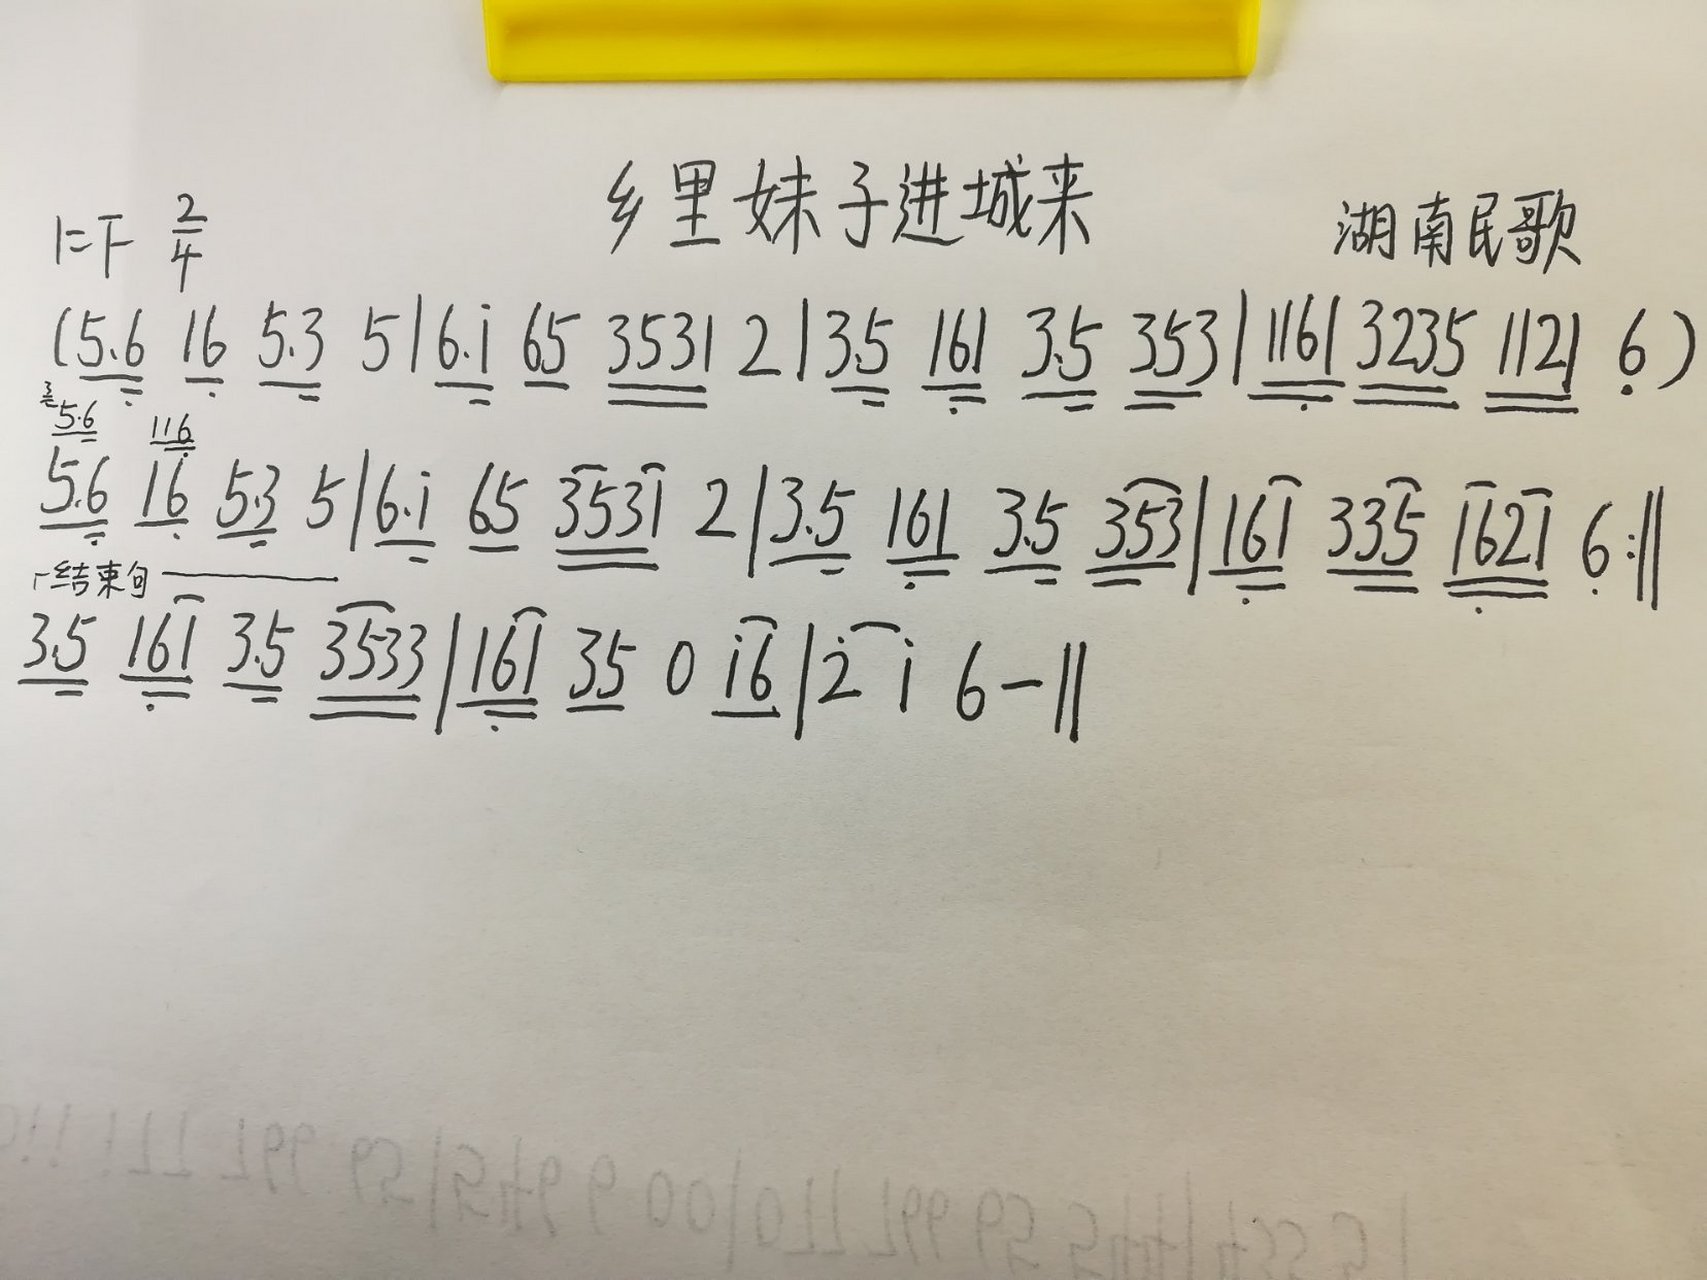 乡里妹子进城来
1=F 2/4 湖南民歌
(5.6 16 5.3 5|6.i 65 3531 2|3.5 161 3.5 353|1161 3235 1121 6)
3 5.6 116
5.6 16 5.3 5|6.i 65 3531 2|3.5 161 3.5 353|161 335 1621 6:||
结束句
3.5 161 3.5 3533|161 35 0 i6|2 i 6-||